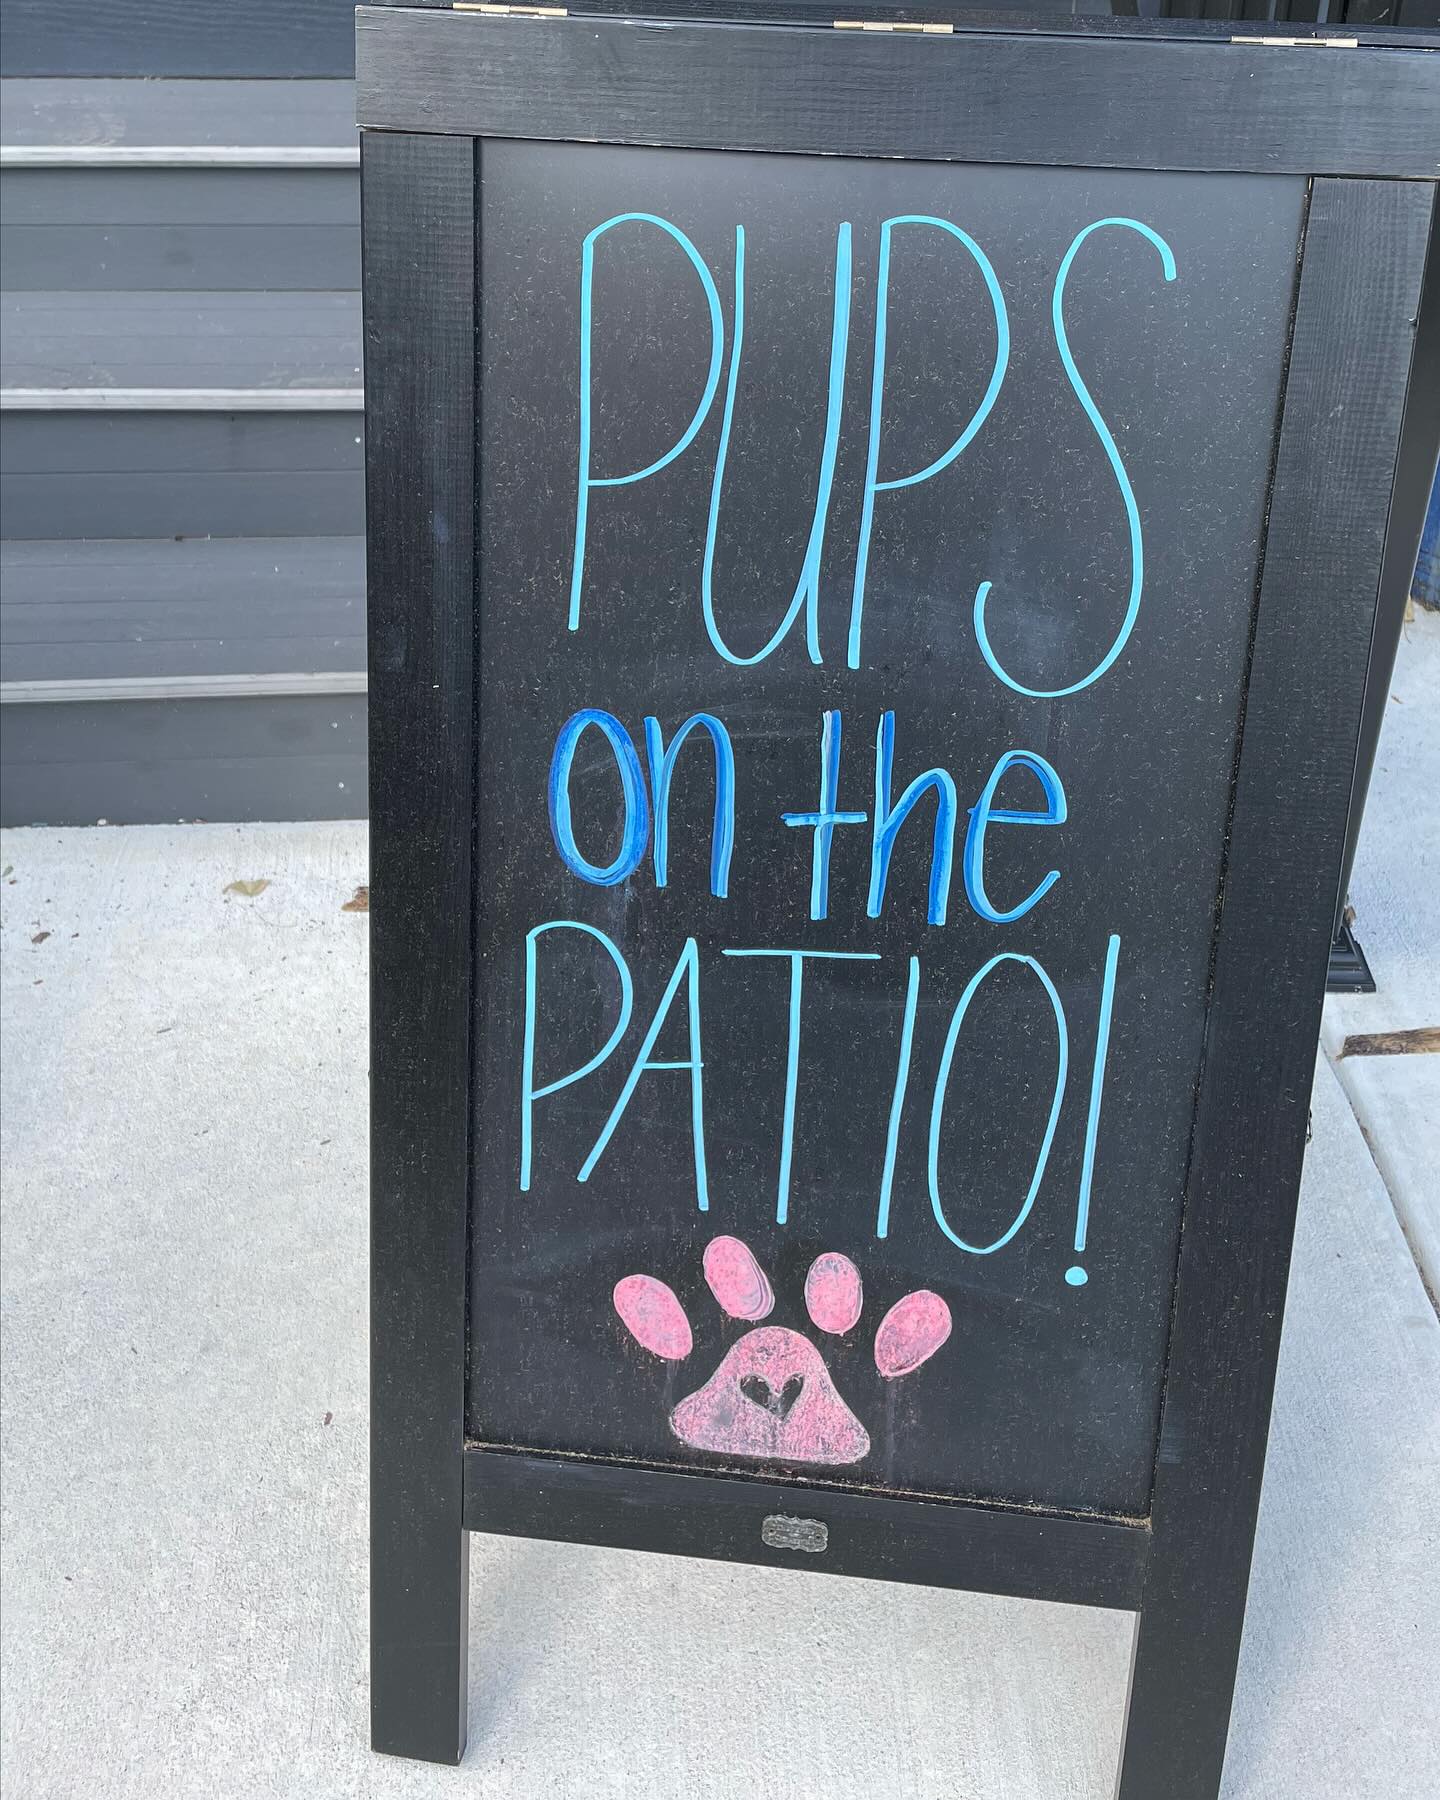 PUPS
on the
PATIO!